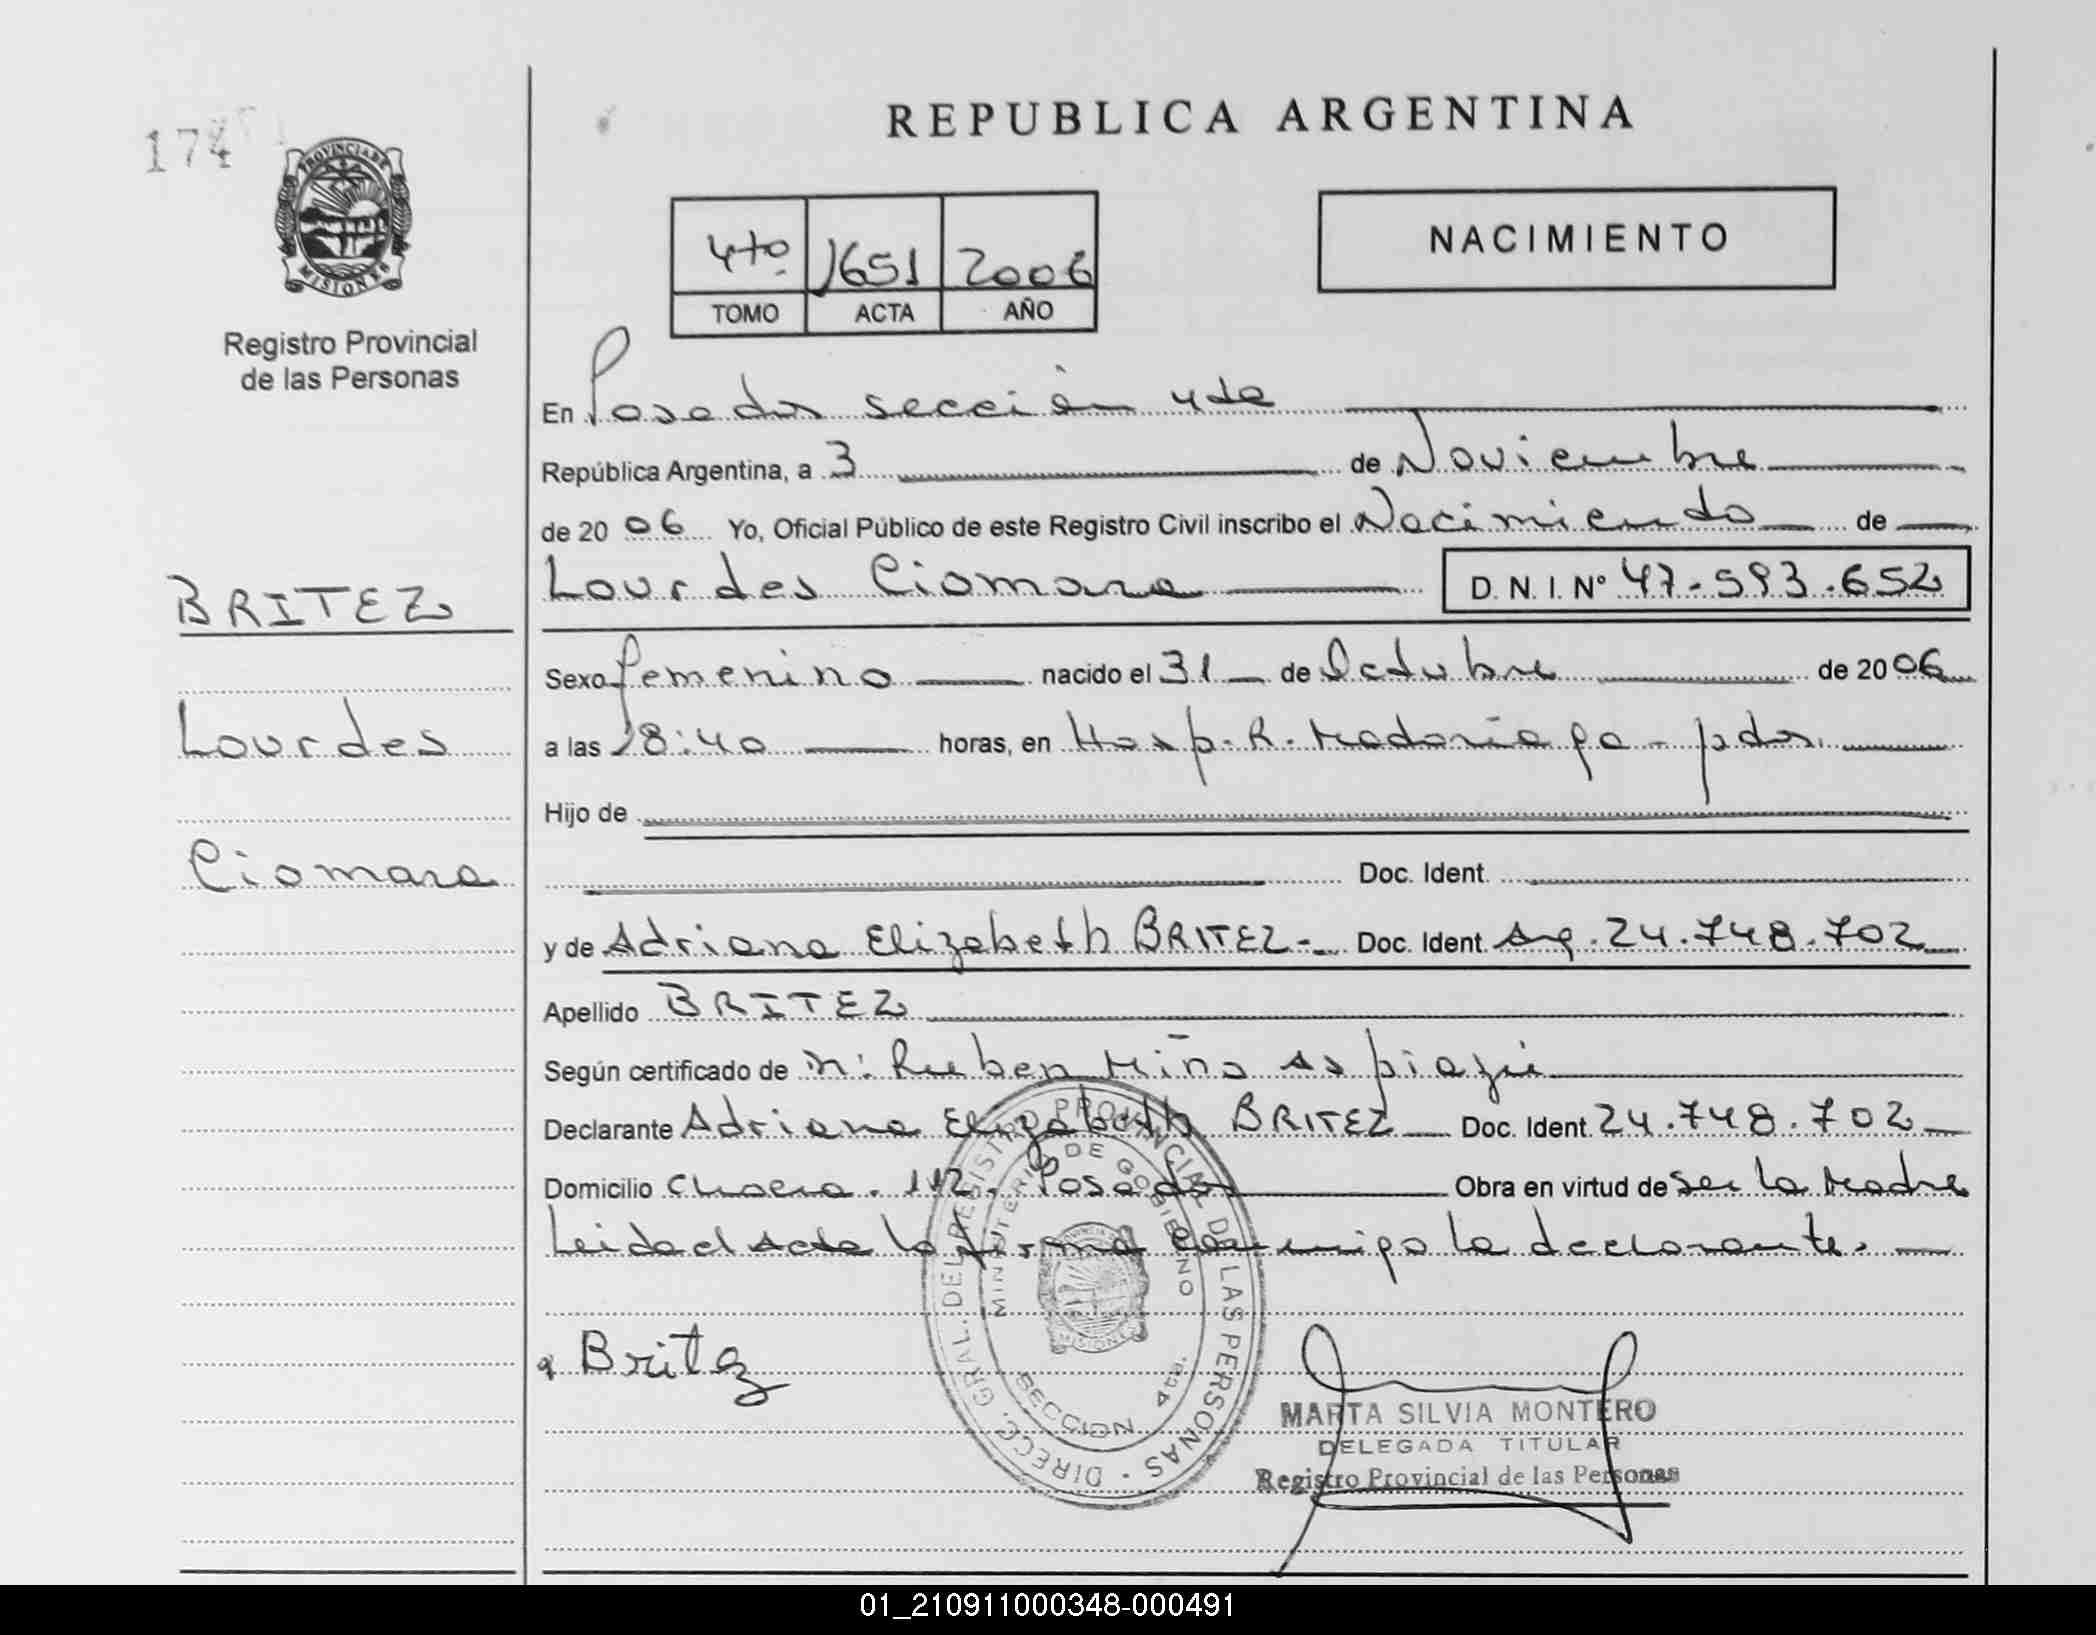 174
REPUBLICA ARGENTINA
PROVINCIA DE MISIONES
Registro Provincial
de las Personas
4to 1651 2006
TOMO ACTA AÑO
NACIMIENTO
En Posadas sección 4ta
República Argentina, a 3 de Noviembre
de 2006 Yo, Oficial Público de este Registro Civil inscribo el Nacimiento de
Lourdes Ciomara D. N. I. N° 47.593.652
BRITEZ
Lourdes
Ciomara
Sexo femenino nacido el 31 de Octubre de 2006
a las 18:40 horas, en Hosp. R. Madariaga - pdas.
Hijo de
Doc. Ident.
y de Adriana Elizabeth BRITEZ- Doc. Ident. Arg. 24.748.702
Apellido BRITEZ
Según certificado de Ruben Miño Aspiazú
Declarante Adriana Elizabeth BRITEZ Doc. Ident. 24.748.702
Domicilio 112. Posadas Obra en virtud de ser la Madre
Leida el Acta la firma conmigo la declarante.
DIRECC. GRAL. DEL REGISTRO PROVINCIAL DE LAS PERSONAS
MINISTERIO DE GOBIERNO
MISIONES
SECCION 4ta.
Britez
MARTA SILVIA MONTERO
DELEGADA TITULAR
Registro Provincial de las Personas
01_210911000348-000491